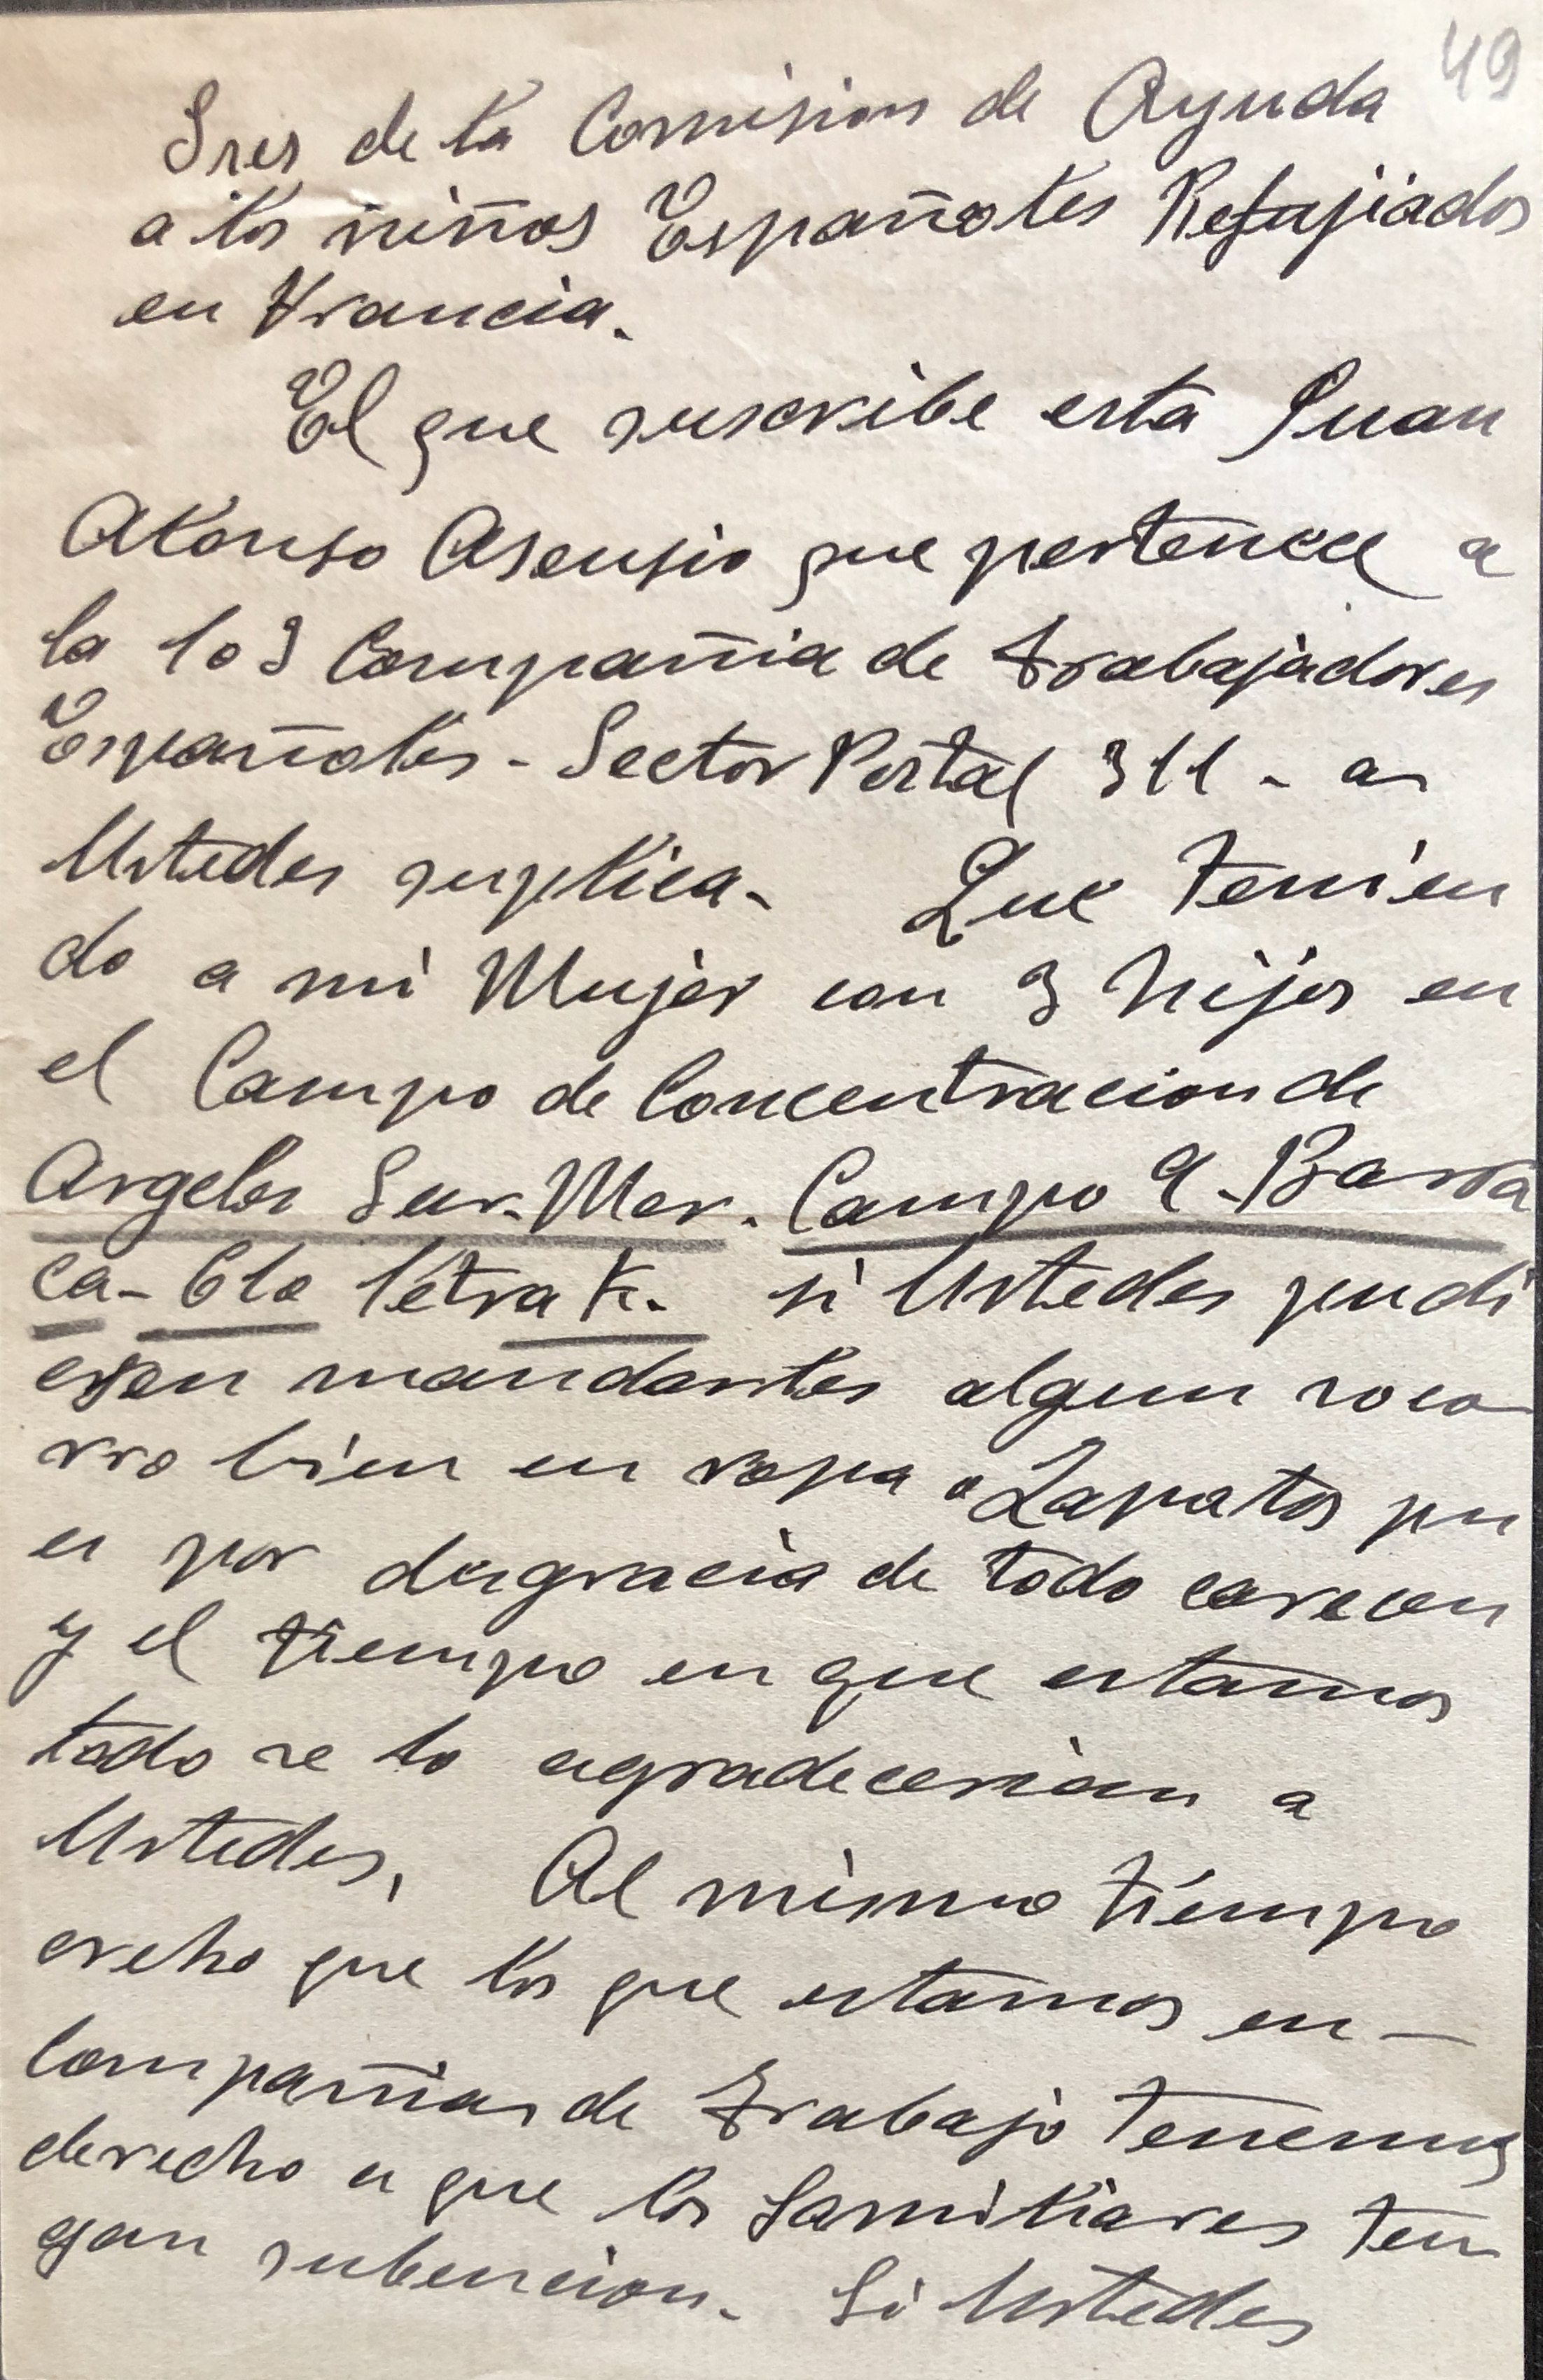 49
Sres de la Comision de Ayuda
a los niños Españoles Refujiados
en Francia.
El que suscribe esta Juan
Alonso Asensio que pertenece a
la 103 Compañia de trabajadores
Españoles - Sector Postal 311 - a
Ustedes suplica. Que tenien
do a mi Mujer con 3 hijos en
el Campo de Concentracion de
Argeles Sur-Mer. Campo 9 - Barra
ca - letra K. si Ustedes pudi
esen mandarles algun soco
rro bien en ropa o Zapatos pu
es por desgracia de todo carecen
y el tiempo en que estamos
todo se lo agradecerian a
Ustedes, Al mismo tiempo
creho que los que estamos en -
Compañias de trabajo tenemos
derecho a que los familiares ten
gan subencion. Si Ustedes